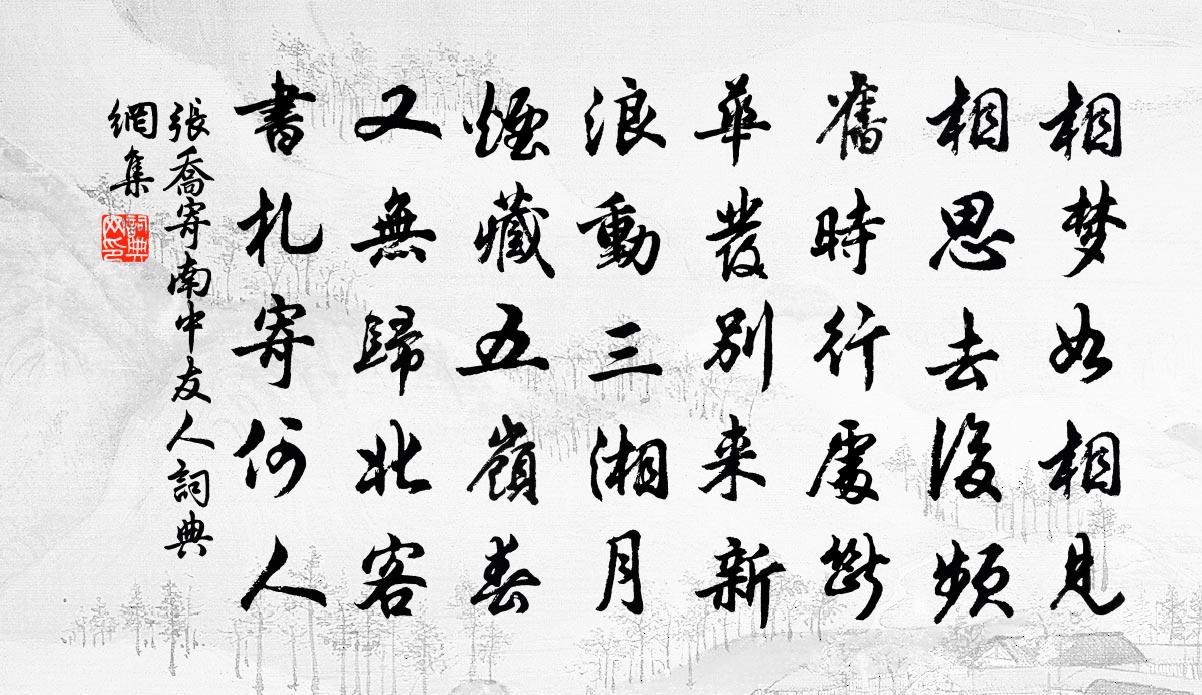 相梦如相見
相思去後頻
舊時行處斷
華發別来新
浪動三湘月
煙藏五嶺春
又無歸北客
書札寄何人
張喬寄南中友人詞典
網集
詞典
网印